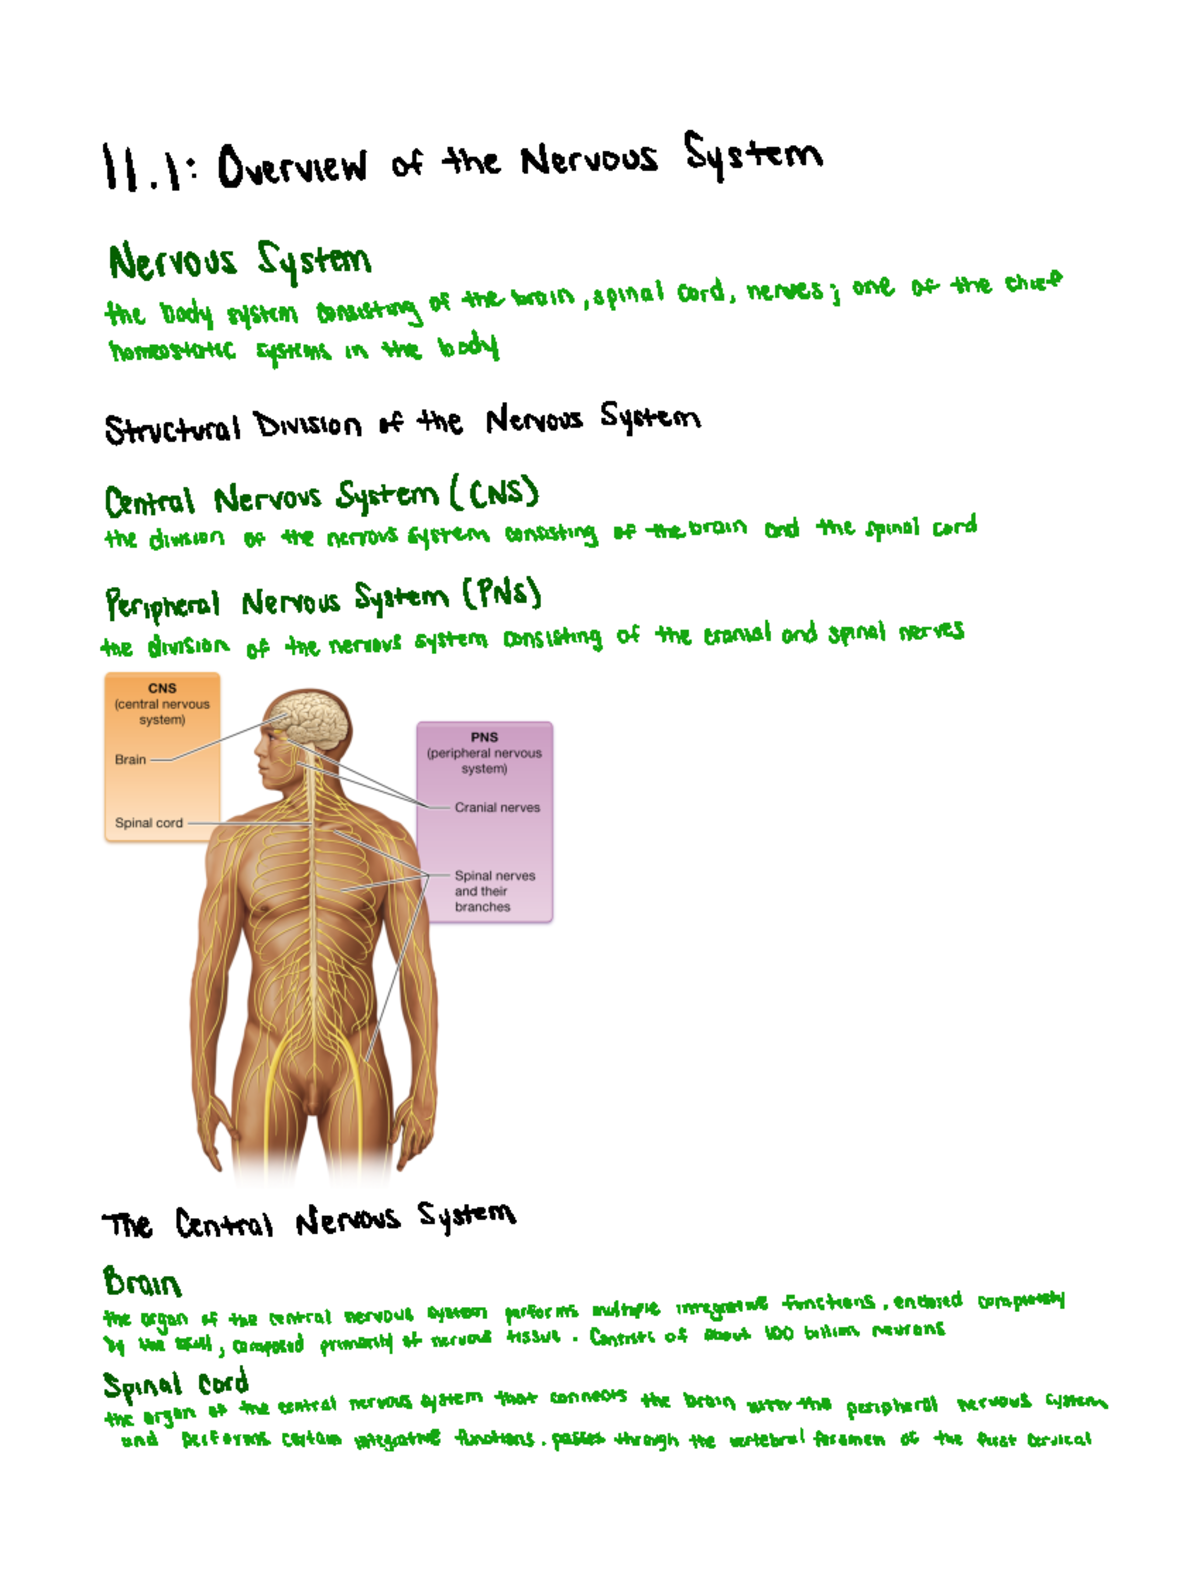 11.1: Overview of the Nervous System
Nervous System
the body system consisting of the brain, spinal cord, nerves; one of the chief
homeostatic systems in the body
Structural Division of the Nervous System
Central Nervous System (CNS)
the division of the nervous system consisting of the brain and the spinal cord
Peripheral Nervous System (PNS)
the division of the nervous system consisting of the cranial and spinal nerves
CNS
(central nervous
system)
Brain
Spinal cord
PNS
(peripheral nervous
system)
Cranial nerves
Spinal nerves
and their
branches
The Central Nervous System
Brain
the organ of the central nervous system performs multiple integrative functions, enclosed completely
by the skull, composed primarily of nervous tissue. Consists of about 100 billion neurons
Spinal Cord
the organ of the central nervous system that connects the brain with the peripheral nervous system
and performs certain integrative functions. passes through the vertebral foramen of the first cervical